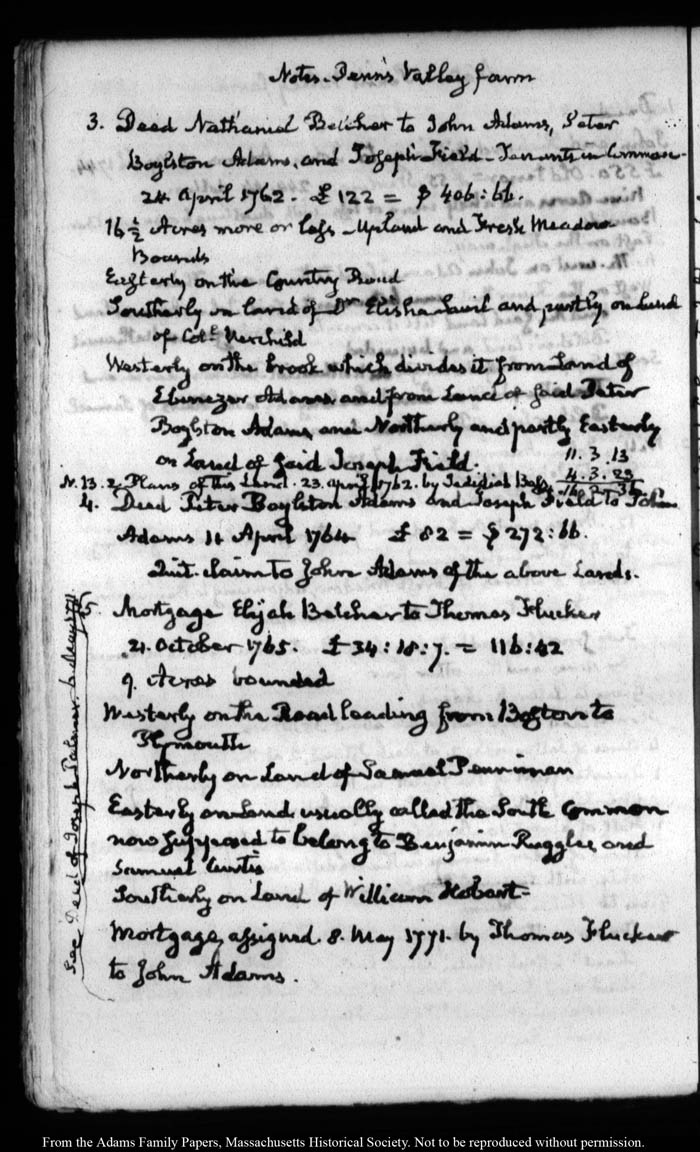 Notes. Penn's Valley farm
3. Deed Nathaniel Belcher to John Adams, Peter
Boylston Adams, and Joseph Field. Tenants in Common
24. April 1762. £122 = $406:66.
16 1/2 Acres more or less. Upland and Fresh Meadow
Bounds
Easterly on the Country Road
Southerly on land of Dn. Elisha Savil and partly on Land
of Coll.
Westerly on the brook which divides it from Land of
Ebenezer Adams and from Land of said Peter
Boylston Adams and Northerly and partly Easterly
on Land of said Joseph Field.
11.3.13
4.3.23
N. 13. 2. Plans of this Land. 23. April 1762. by Jedidiah Bass
4. Deed Peter Boylston Adams and Joseph Field to John
Adams 14 April 1764 £82 = $272:66.
Quit-claim to John Adams of the above Lands.
5. Mortgage Elijah Belcher to Thomas Flucker
21. October 1765. £34:18:7. = 116:42
9. Acres bounded
Westerly on the Road leading from Boston to
Plymouth
Northerly on Land of Samuel Penniman
Easterly on Land usually called the South Common
now supposed to belong to Benjamin Ruggles and
Samuel Curtis
Southerly on Land of William Hobart.
Mortgage assigned. 8. May 1771. by Thomas Flucker
to John Adams.
See Deed of Joseph Palmer. 6. May 1771.
From the Adams Family Papers, Massachusetts Historical Society. Not to be reproduced without permission.